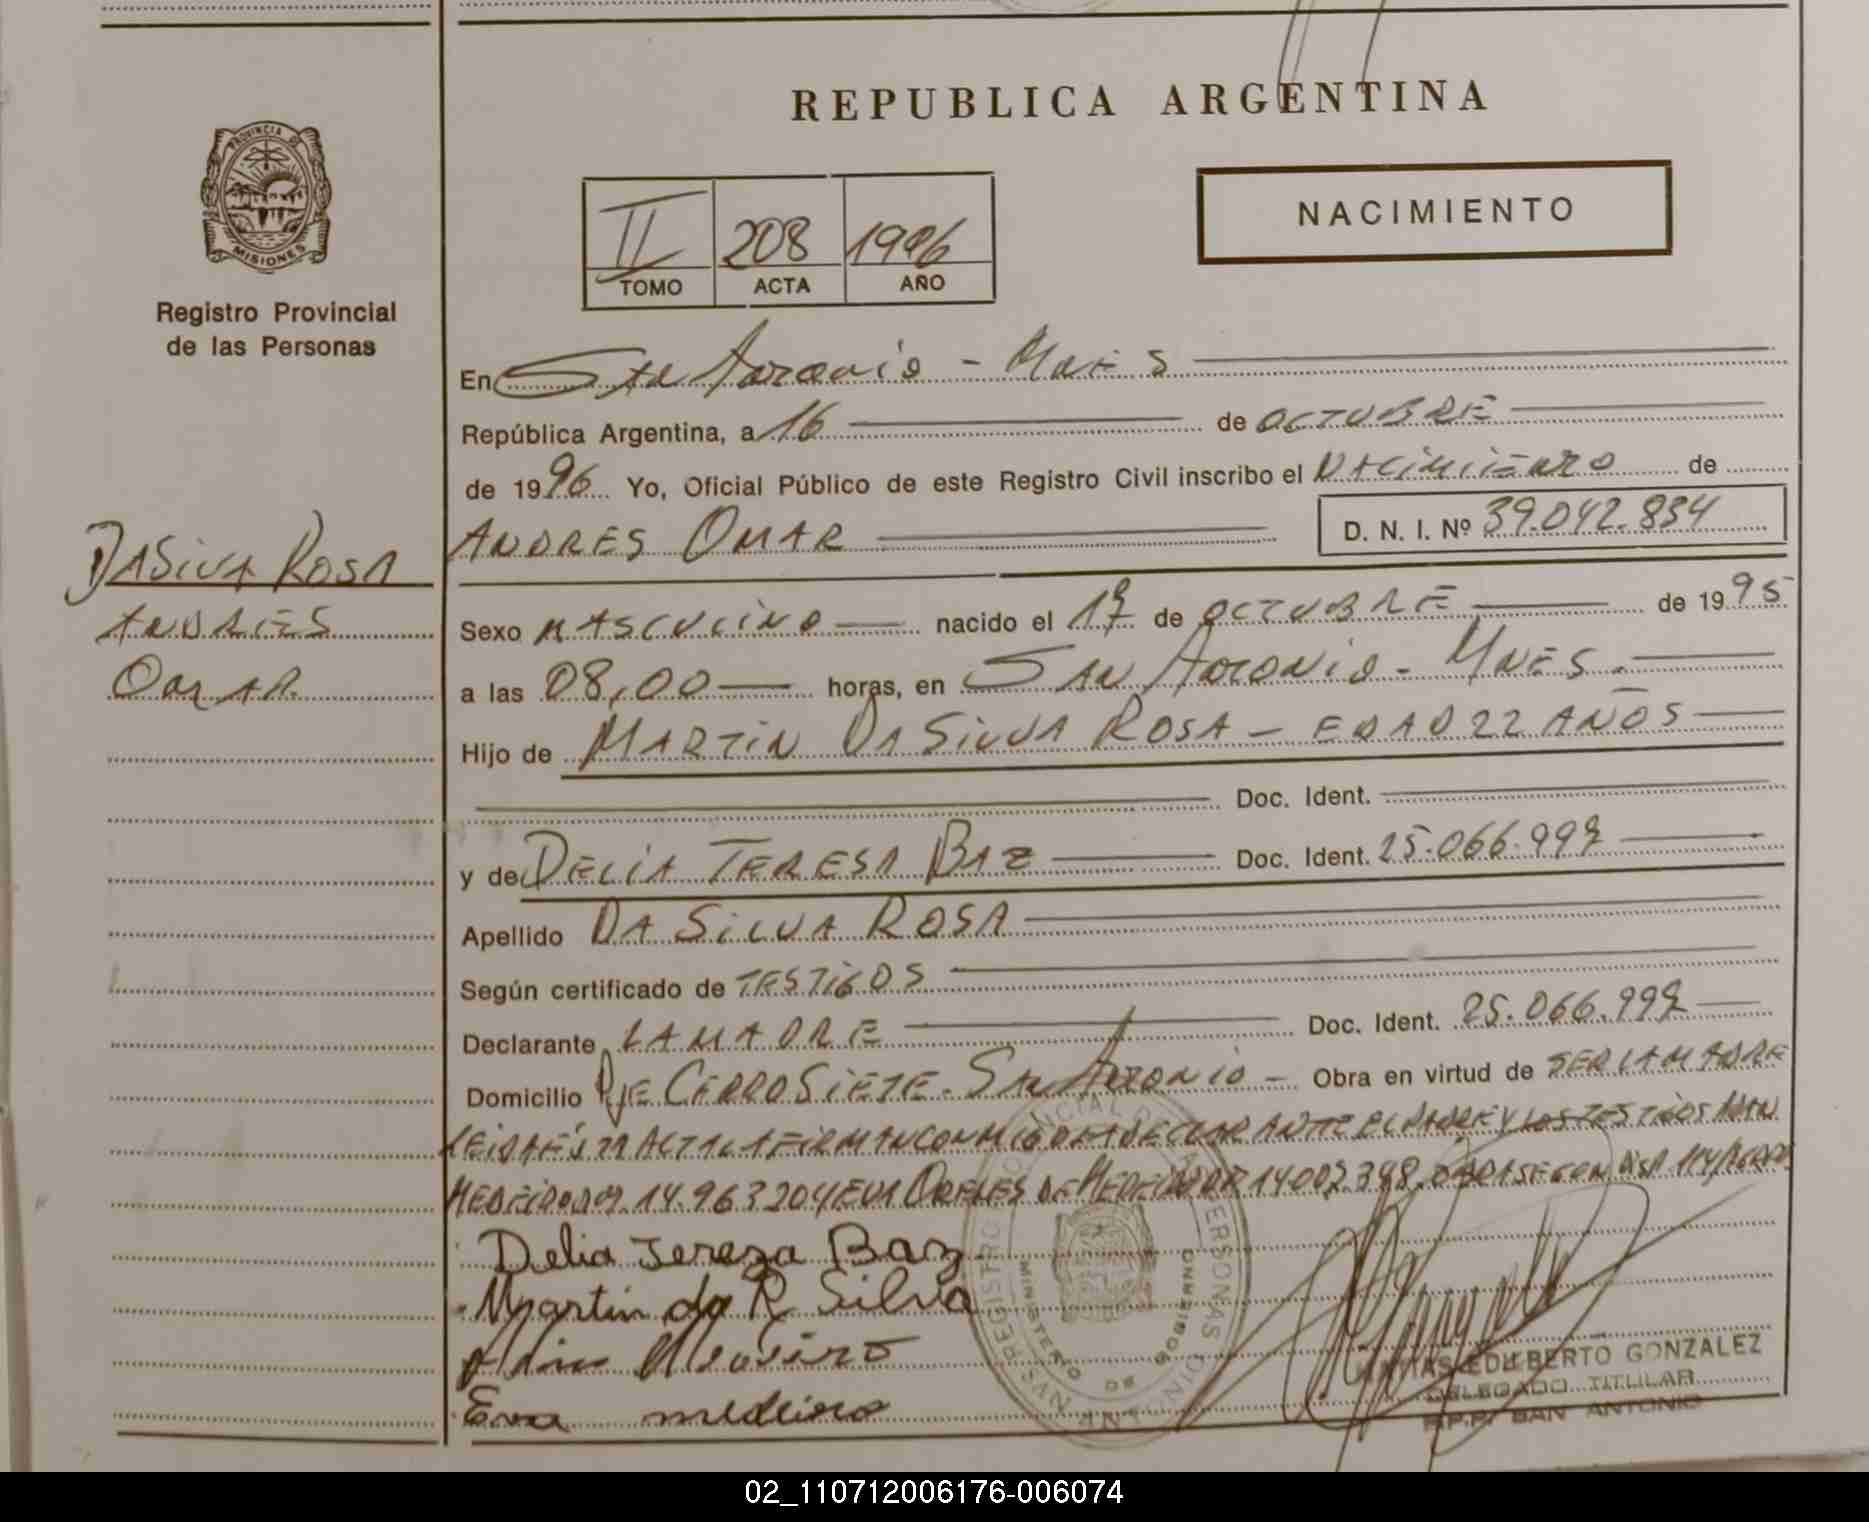 REPUBLICA ARGENTINA
PROVINCIA DE
MISIONES
Registro Provincial
de las Personas
NACIMIENTO
II 208 1996
TOMO ACTA AÑO
En San Antonio - Mnes
República Argentina, a 16 de OCTUBRE
de 1996 Yo, Oficial Público de este Registro Civil inscribo el NACIMIENTO de
ANDRES OMAR D. N. I. Nº 39.042.834
DASILVA ROSA
ANDRES
OMAR
Sexo MASCULINO nacido el 17 de OCTUBRE de 1995
a las 08,00 horas, en SAN ANTONIO - MNES.
Hijo de MARTIN DA SILVA ROSA - EDAD 22 AÑOS
Doc. Ident.
y de DELIA TERESA BAZ Doc. Ident. 25.066.999
Apellido DA SILVA ROSA
Según certificado de TESTIGOS
Declarante LA MADRE Doc. Ident. 25.066.999
Domicilio Pje CERRO SIETE - San Antonio - Obra en virtud de SER LA MADRE
LEIDA ESTA ACTA LA FIRMAN CONMIGO LA DECLARANTE EL PADRE Y LOS TESTIGOS
MEDEIRO 14.963.204 EVA DE MEDEIRO 14002.398 SEGUN
Delia Tereza Baz
Martin da R Silva
Eva medeiro
REGISTRO PROVINCIAL DE LAS PERSONAS
MINISTERIO DE GOBIERNO
EDILBERTO GONZALEZ
DELEGADO TITULAR
R.P.P. SAN ANTONIO
02_110712006176-006074